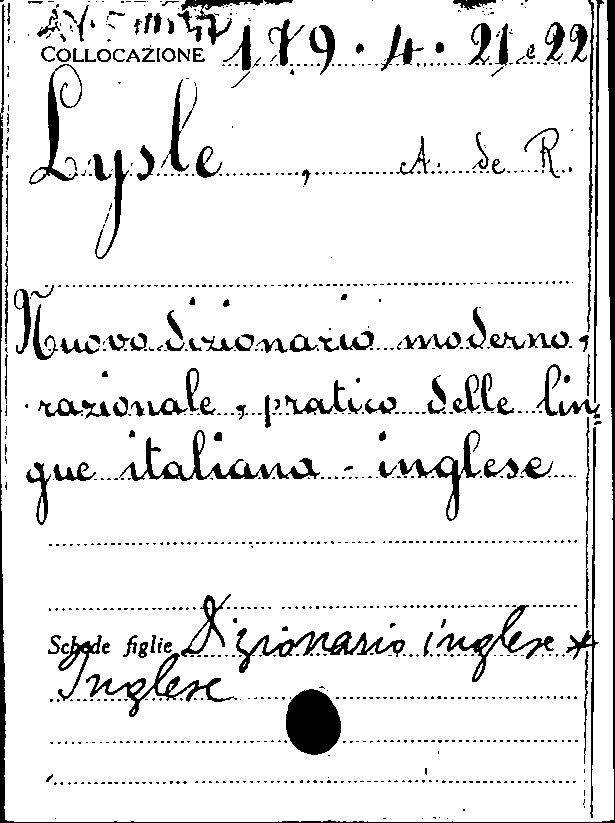 COLLOCAZIONE 179.4.21 e 22
Lysle, A. de R.
Nuovo dizionario moderno,
razionale, pratico delle lin=
gue italiana - inglese
Schede figlie Dizionario inglese *
Inglese